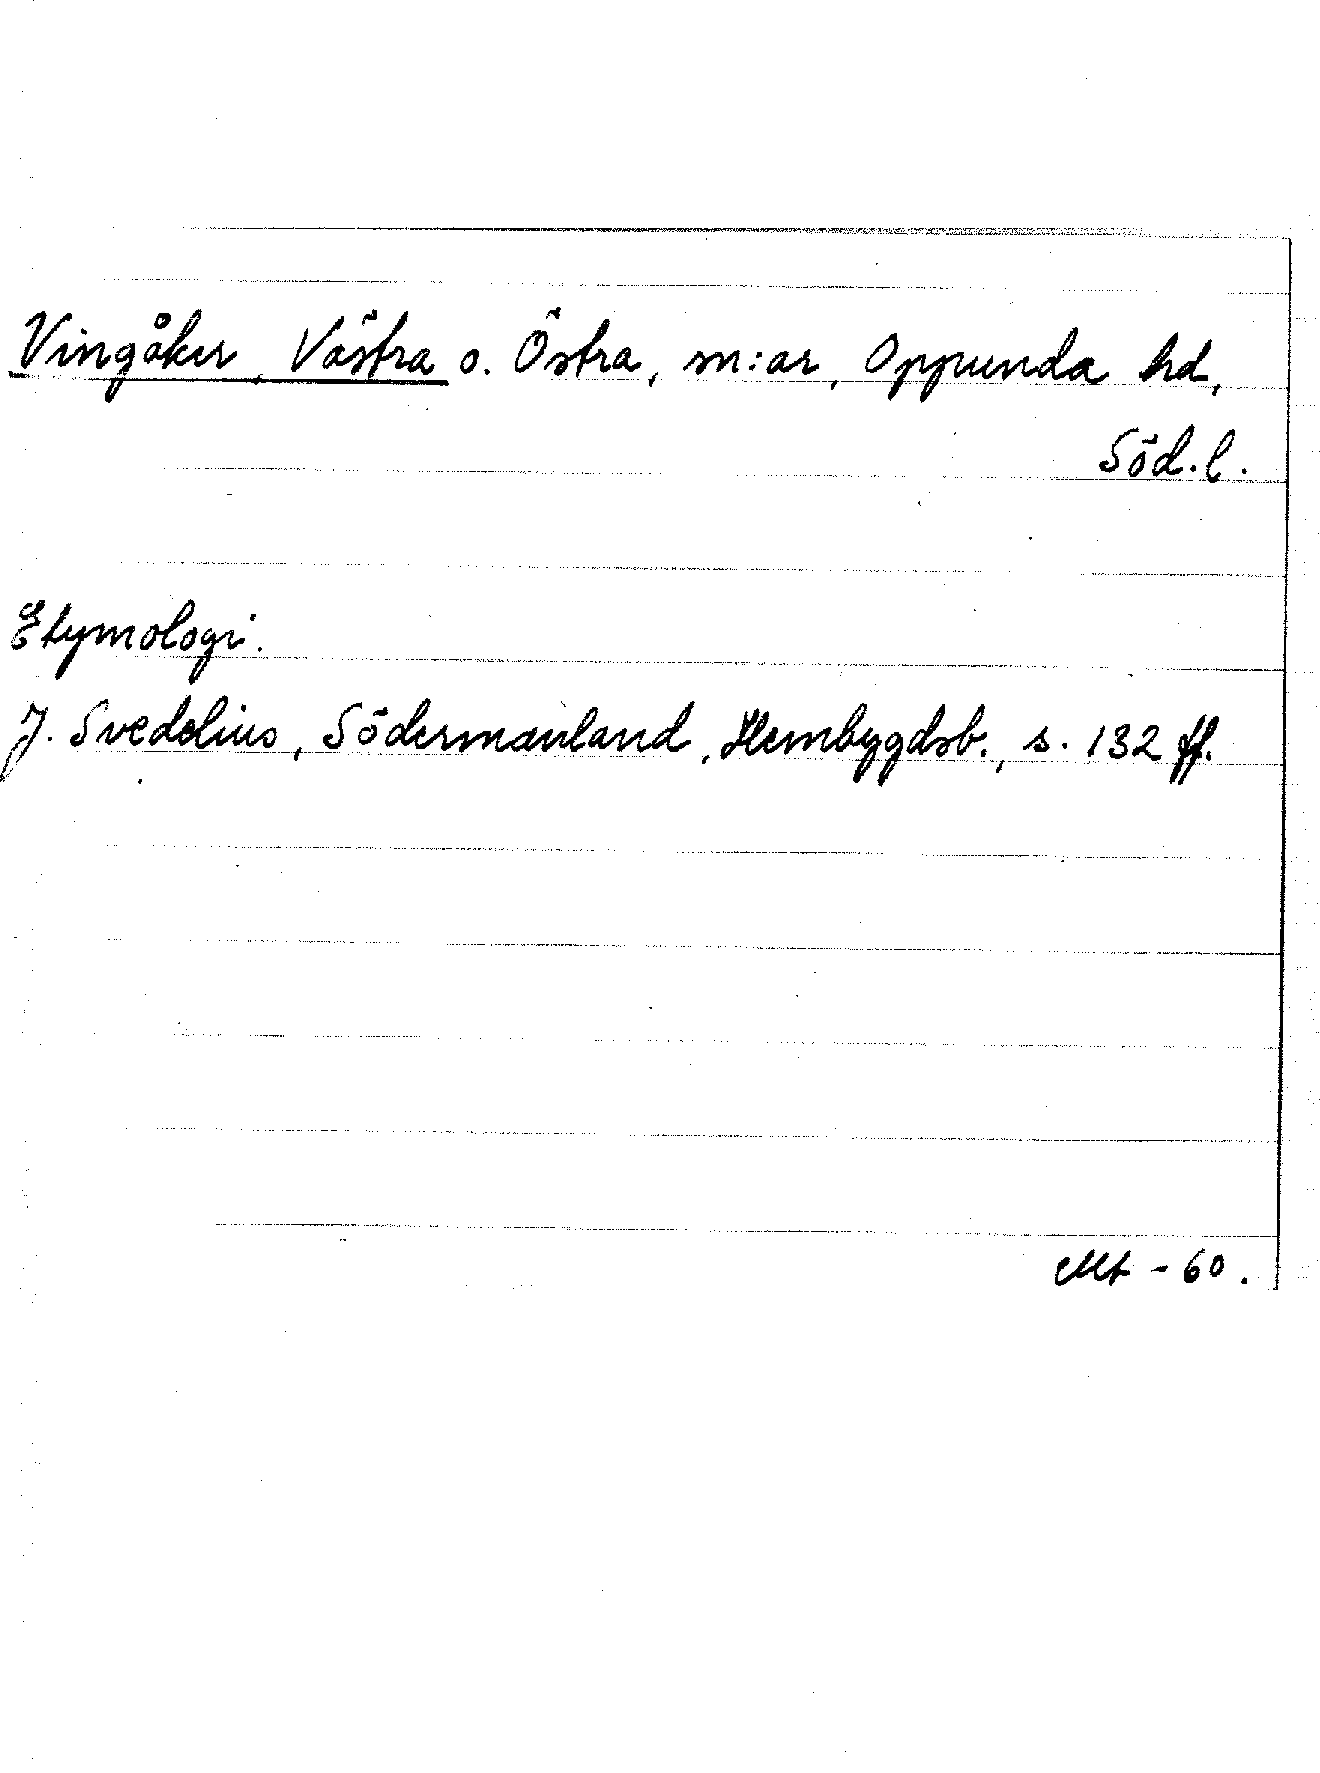 Vingåker, Västra o. Östra, sn:ar, Oppunda hd,
Söd.l.
Etymologi.
J. Svedelius, Södermanland, Hembygdsb., s. 132 ff.
Mt - 60.